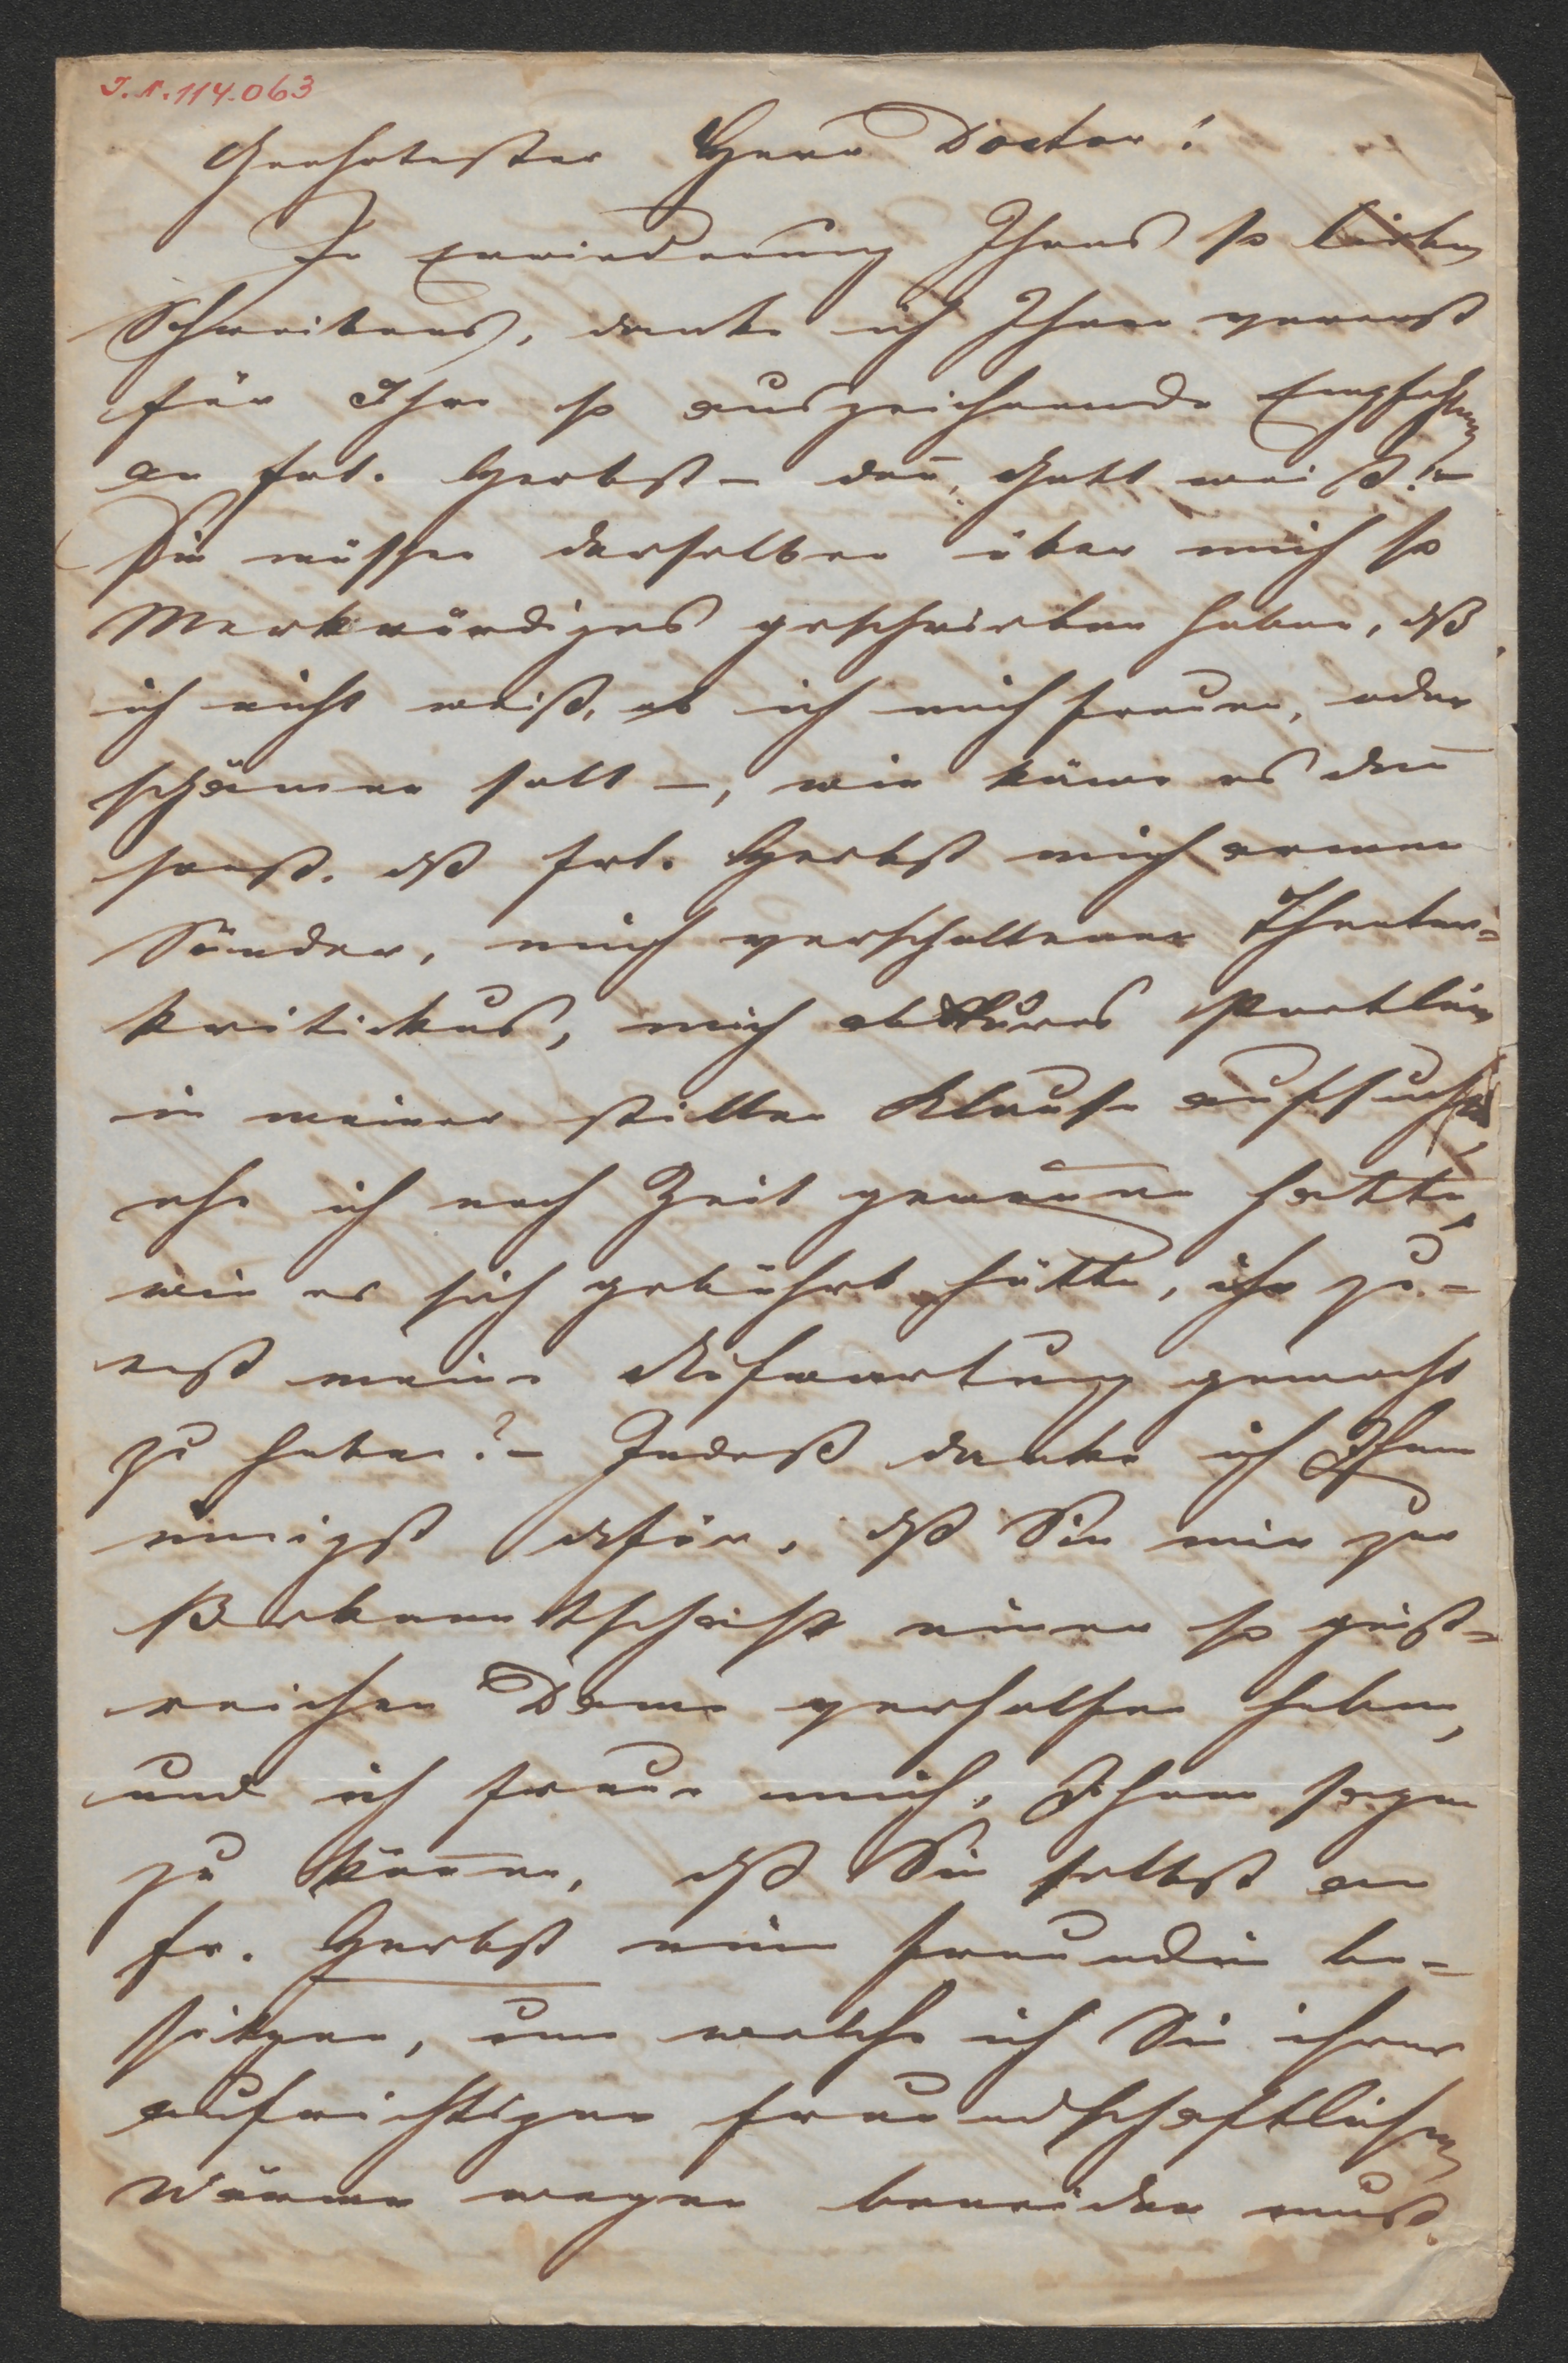 I.N. 114.063
Geehrtester Herr Doctor!
In Erwiederung Ihres so lieben
Schreibens, danke ich Ihnen vorerst
für Ihre so auszeichnende Empfehlung
an Frl. Herbst – deñ, Gott weiß! –
Sie müssen derselben über mich so
Merkwürdiges geschrieben haben, dß
ich nicht weiß, ob ich mich freuen, oder
schämen soll –, wie käme es deñ
sonst, dß Frl. Herbst mich armen
Sünder, mich verschollenen Theater-
kritickus, mich obskures Poetlein
in meiner stillen Klause aufsuchte,
ehe ich noch Zeit gewoñen hatte,
wie es sich gebührt hätte, ihr zu-
erst meine Aufwartung gemacht
zu haben? – Indeß danke ich Ihnen
innigst dafür, dß Sie mir zur
Bekanntschaft einer so geist-
reichen Dame verholfen haben,
und ich freue mich, Ihnen sagen
zu köñen, dß Sie selbst an
Fr. Herbst eine Freundin be-
sitzen, um welche ich Sie ihrer
aufrichtigen freundschaftlichen
Wärme wegen beneiden muß.